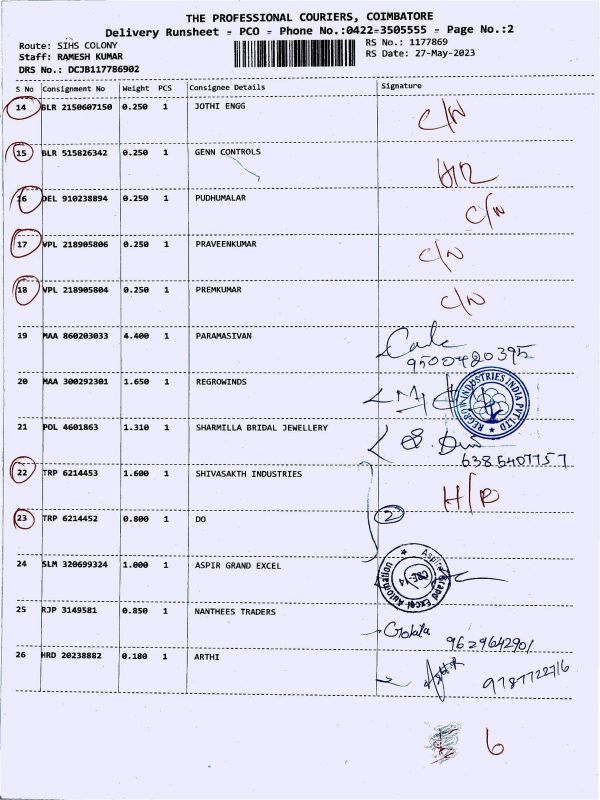 THE PROFESSIONAL COURIERS, COIMBATORE
Delivery Runsheet - PCO - Phone No.:0422-3505555 - Page No.:2
Route: SIHS COLONY RS No.: 1177869
Staff: RAMESH KUMAR RS Date: 27-May-2023
DRS No.: DCJB117786902
S No Consignment No Weight PCS Consignee Details Signature
14 BLR 2150607150 0.250 1 JOTHI ENGG C/N
15 BLR 515826342 0.250 1 GENN CONTROLS
16 DEL 910238894 0.250 1 PUDHUMALAR C/N
17 VPL 218905806 0.250 1 PRAVEENKUMAR C/N
18 VPL 218905804 0.250 1 PREMKUMAR C/N
19 MAA 860203033 4.400 1 PARAMASIVAN
9500420395
20 MAA 300292301 1.650 1 REGROWINDS
REGROW INDUSTRIES INDIA PVT LTD
21 POL 4601863 1.310 1 SHARMILLA BRIDAL JEWELLERY
6385407757
22 TRP 6214453 1.600 1 SHIVASAKTH INDUSTRIES H/R
23 TRP 6214452 0.800 1 DO 2
24 SLM 320699324 1.000 1 ASPIR GRAND EXCEL
Aspira Grand Excel Automation CBE-14
25 RJP 3149581 0.850 1 NANTHEES TRADERS
Gokila 9629642901
26 HRD 20238882 0.180 1 ARTHI
9787722716
6